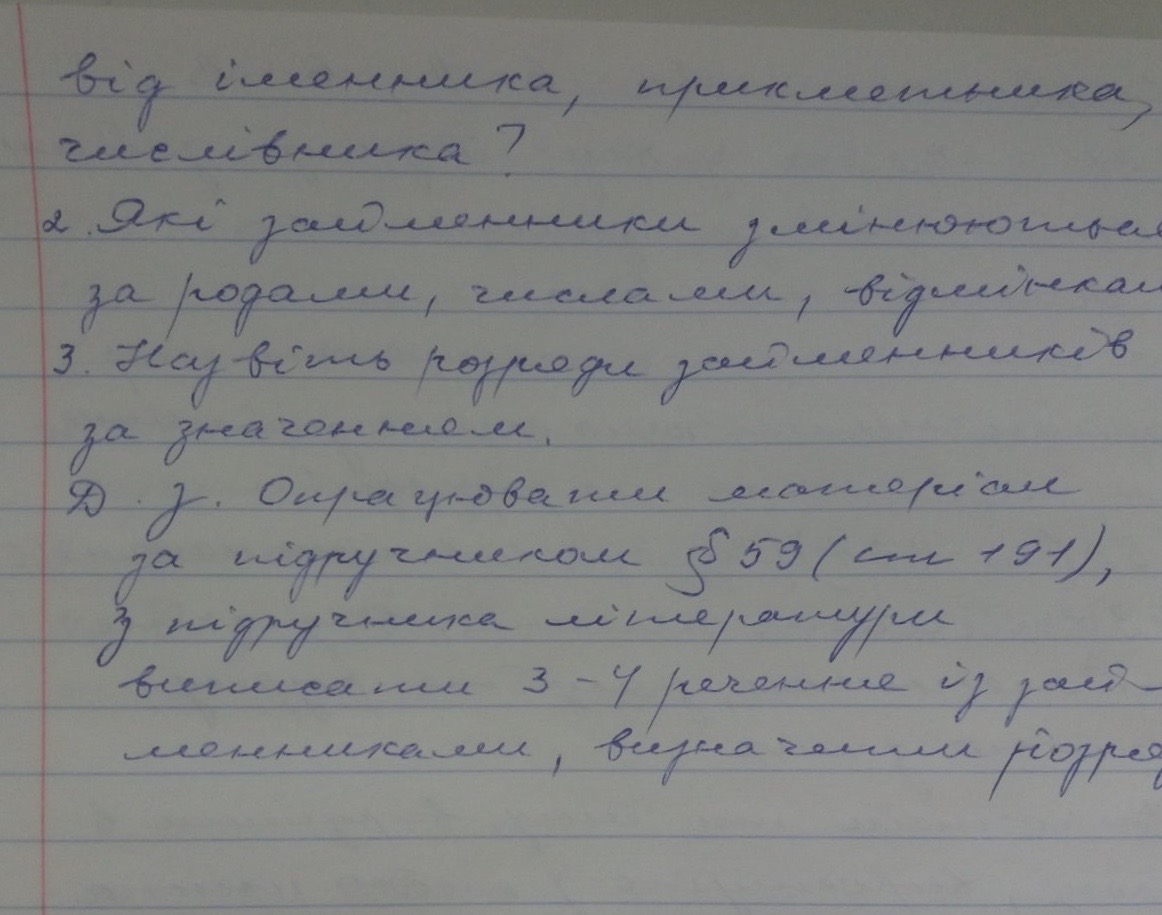 від іменника, прикметника,
числівника?
2. Які займенники змінюються
за родами, числами, відмінкам
3. Назвіть розряди займенників
за значенням.
Д. з. Опрацювати матеріал
за підручником § 59 (ст 191),
З підручника літератури
виписати 3-4 речення із зай-
менниками, визначити розряд